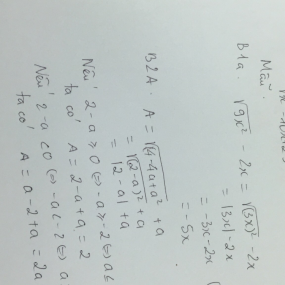 Mẫu.
B1a √9x² - 2x = √(3x)² - 2x
= |3x| - 2x
= -3x - 2x
= -5x
B2A. A = √4-4a+a² + a
= √(2-a)² + a
= |2-a| + a
Nếu 2-a ≥ 0 ⇔ -a ≥ -2 ⇔ a ≤
ta có A = 2-a+a = 2
Nếu 2-a < 0 ⇔ -a < -2 ⇔ a
ta có A = a-2+a = 2a